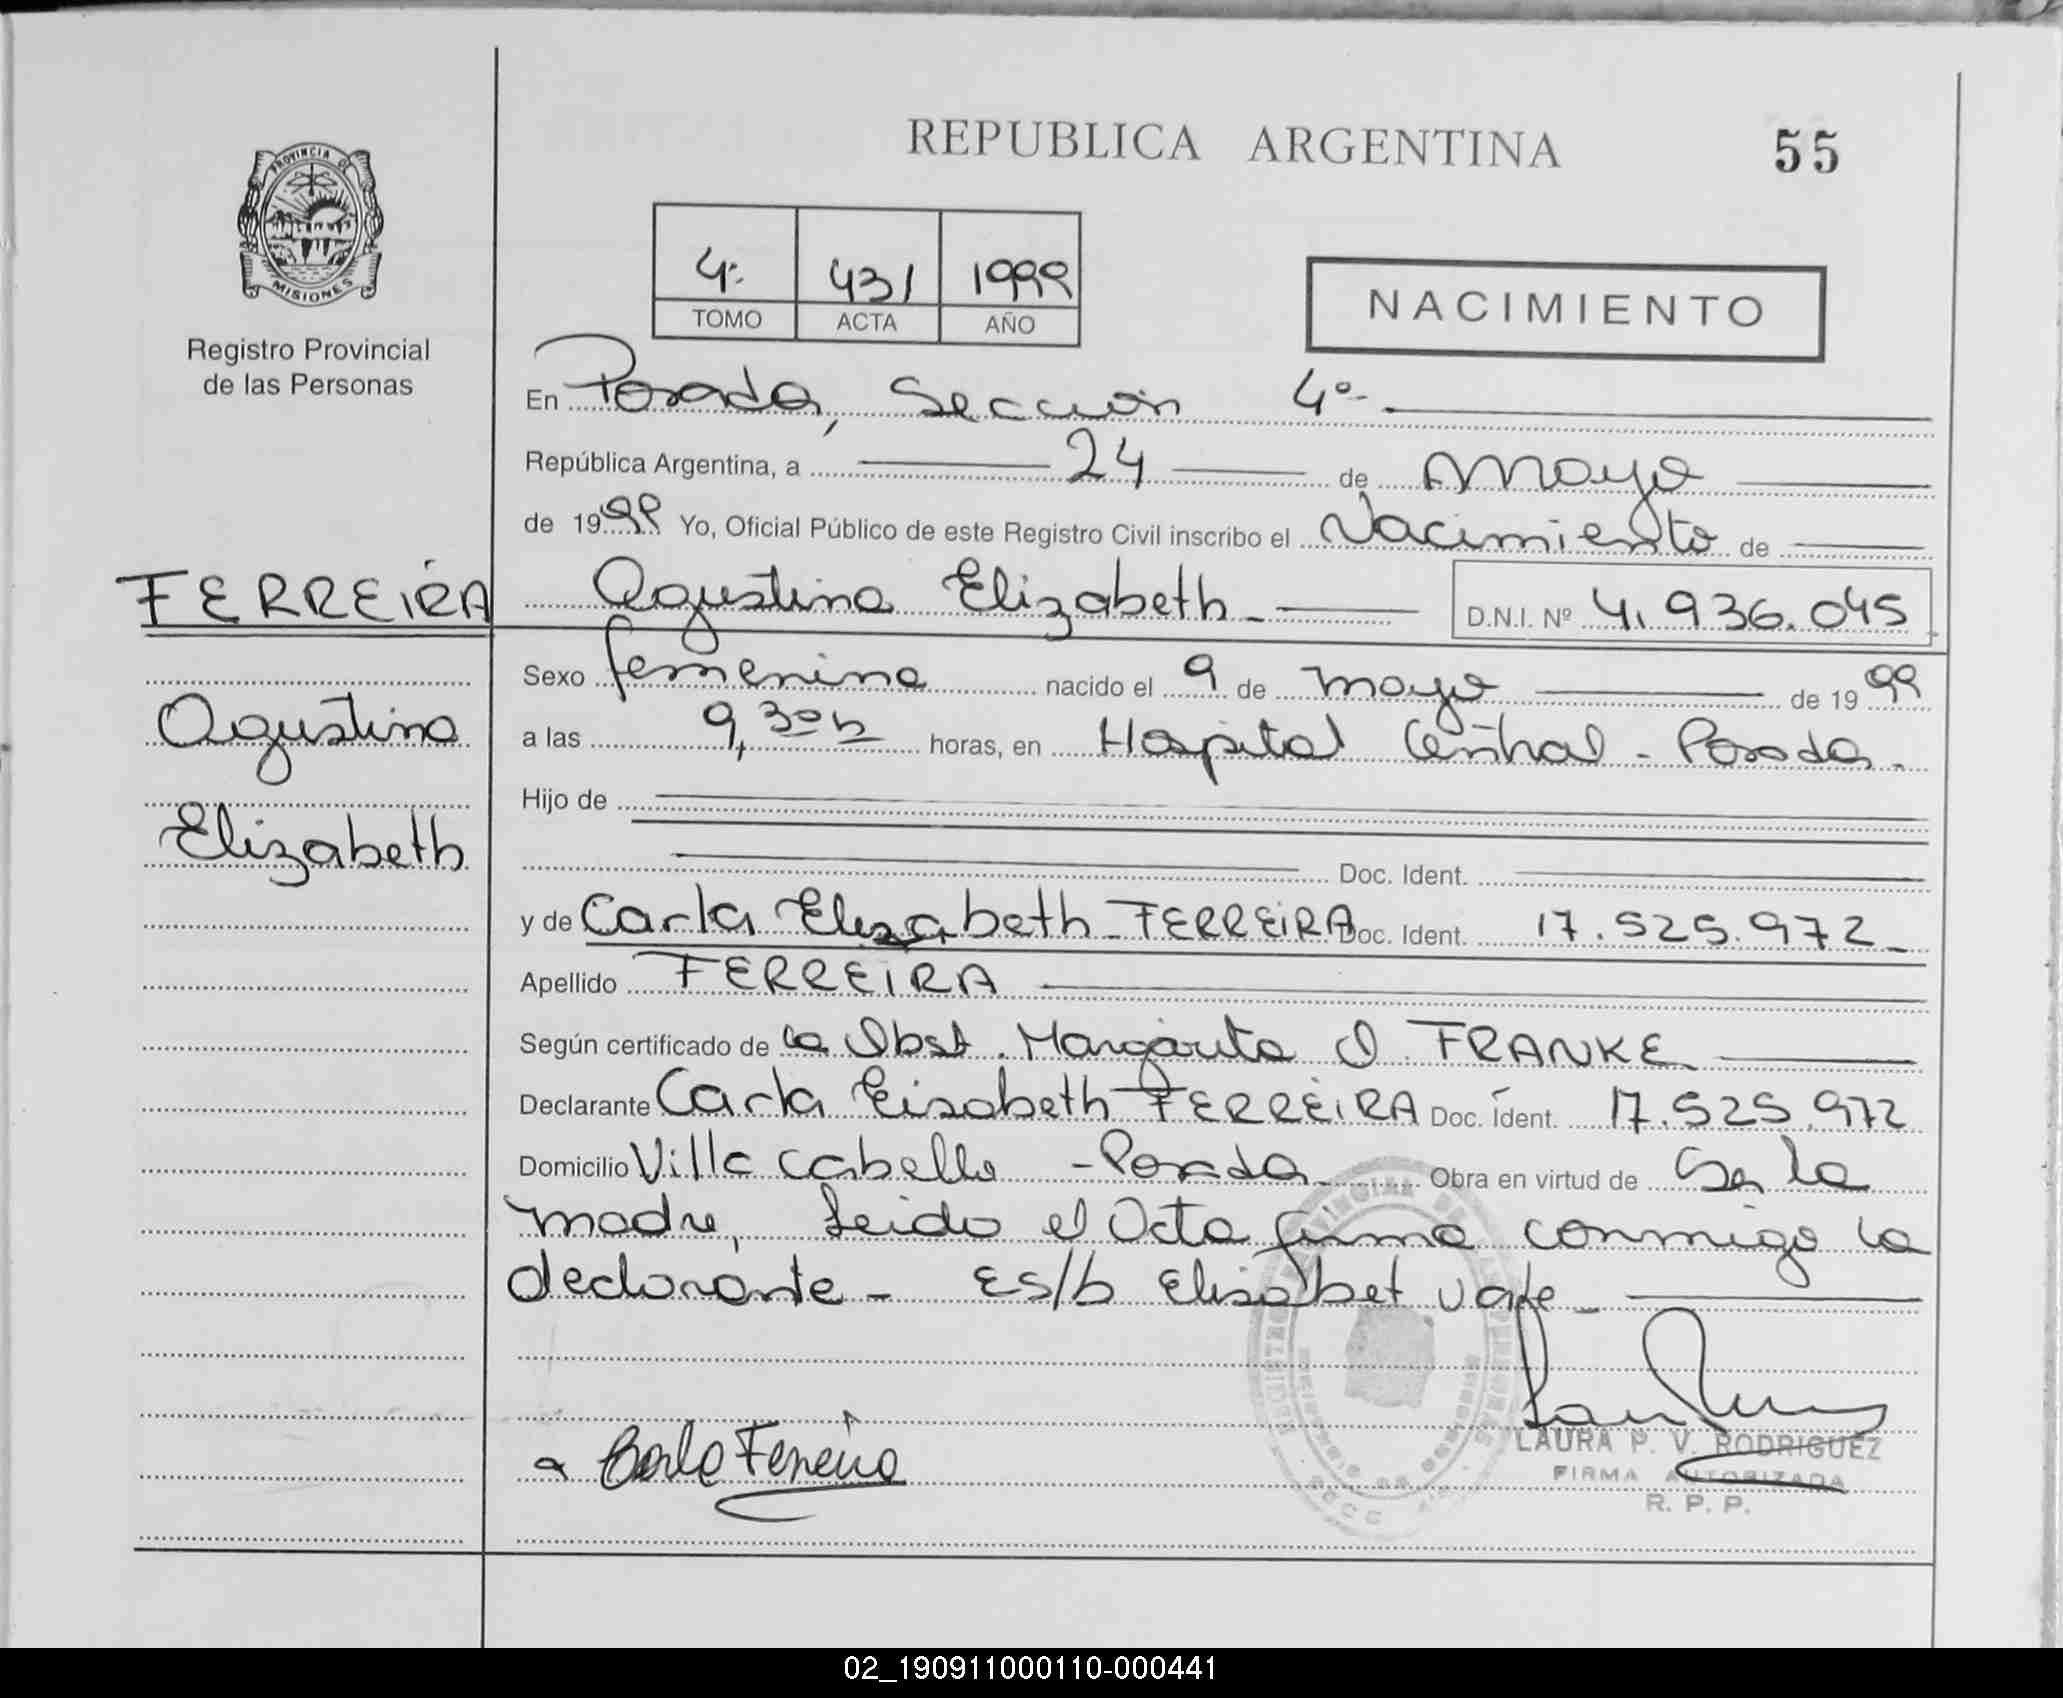 REPUBLICA ARGENTINA
55
PROVINCIA DE
MISIONES
Registro Provincial
de las Personas
4º 431 1999
TOMO ACTA AÑO
NACIMIENTO
En Posadas, Sección 4º
República Argentina, a 24 de mayo
de 1999 Yo, Oficial Público de este Registro Civil inscribo el Nacimiento de
FERREIRA Agustina Elizabeth D.N.I. Nº 4.936.045
Agustina
Elizabeth
Sexo femenino nacido el 9 de mayo de 1999
a las 9,30 h horas, en Hospital Central - Posadas.
Hijo de
Doc. Ident.
y de Carla Elisabeth FERREIRA Doc. Ident. 17.525.972
Apellido FERREIRA
Según certificado de la Obst. Margarita O. FRANKE
Declarante Carla Elisabeth FERREIRA Doc. Ident. 17.525.972
Domicilio Villa Cabello - Posadas Obra en virtud de Ser la
madre, Leido el Acta firma conmigo la
declarante - Es/b Elisabet vale -
Carla Ferreira
LAURA P. V. RODRIGUEZ
FIRMA AUTORIZADA
R. P. P.
02_190911000110-000441